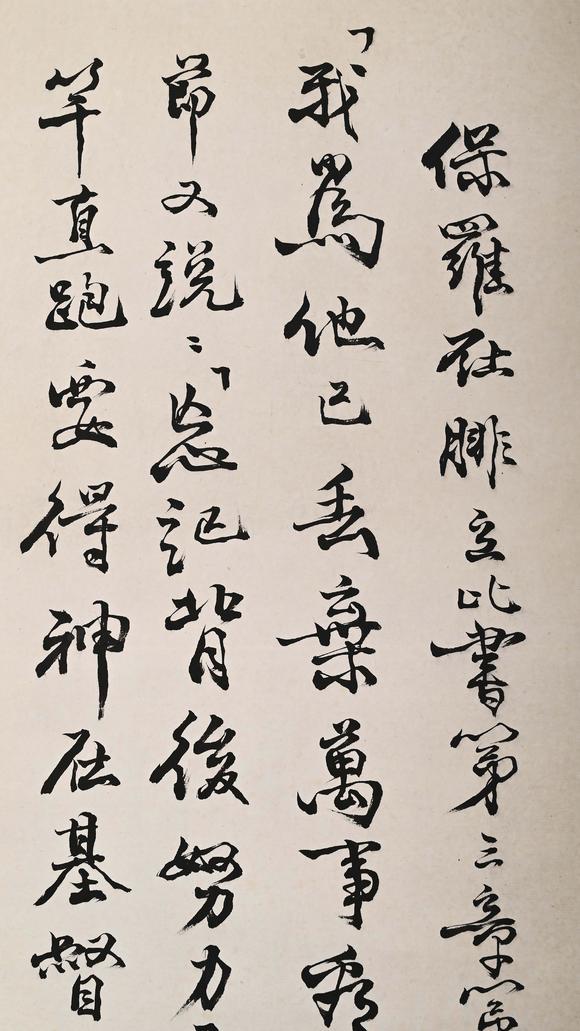 保羅在腓立比書第三章第
「我為他已丟棄萬事看
節又說：「忘記背後努力
竿直跑要得神在基督